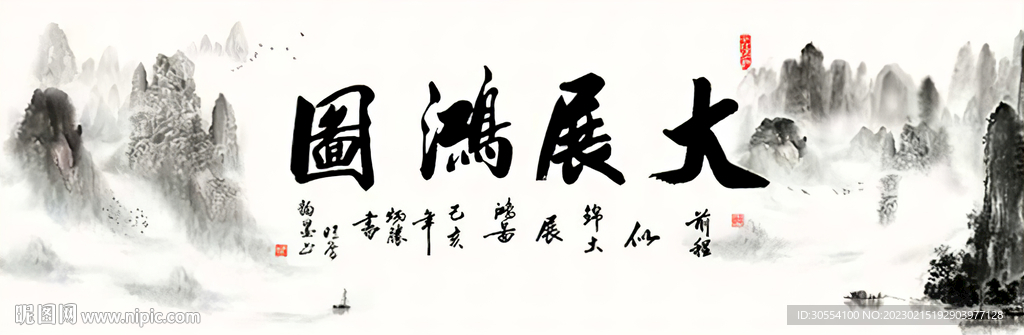 大展鴻圖
前程似錦大展鴻啚己亥年炳勝書
昵图网 www.nipic.com
ID:30554100 NO:20230215192903977128